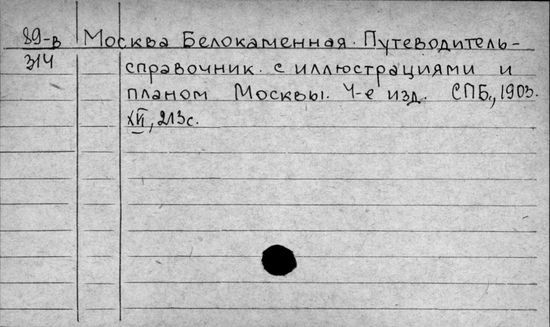 89-в Москва Белокаменная. Путеводитель-
314 справочник с иллюстрациями и
планом Москвы. 4-е изд. СПБ., 1903.
XII, 213с.